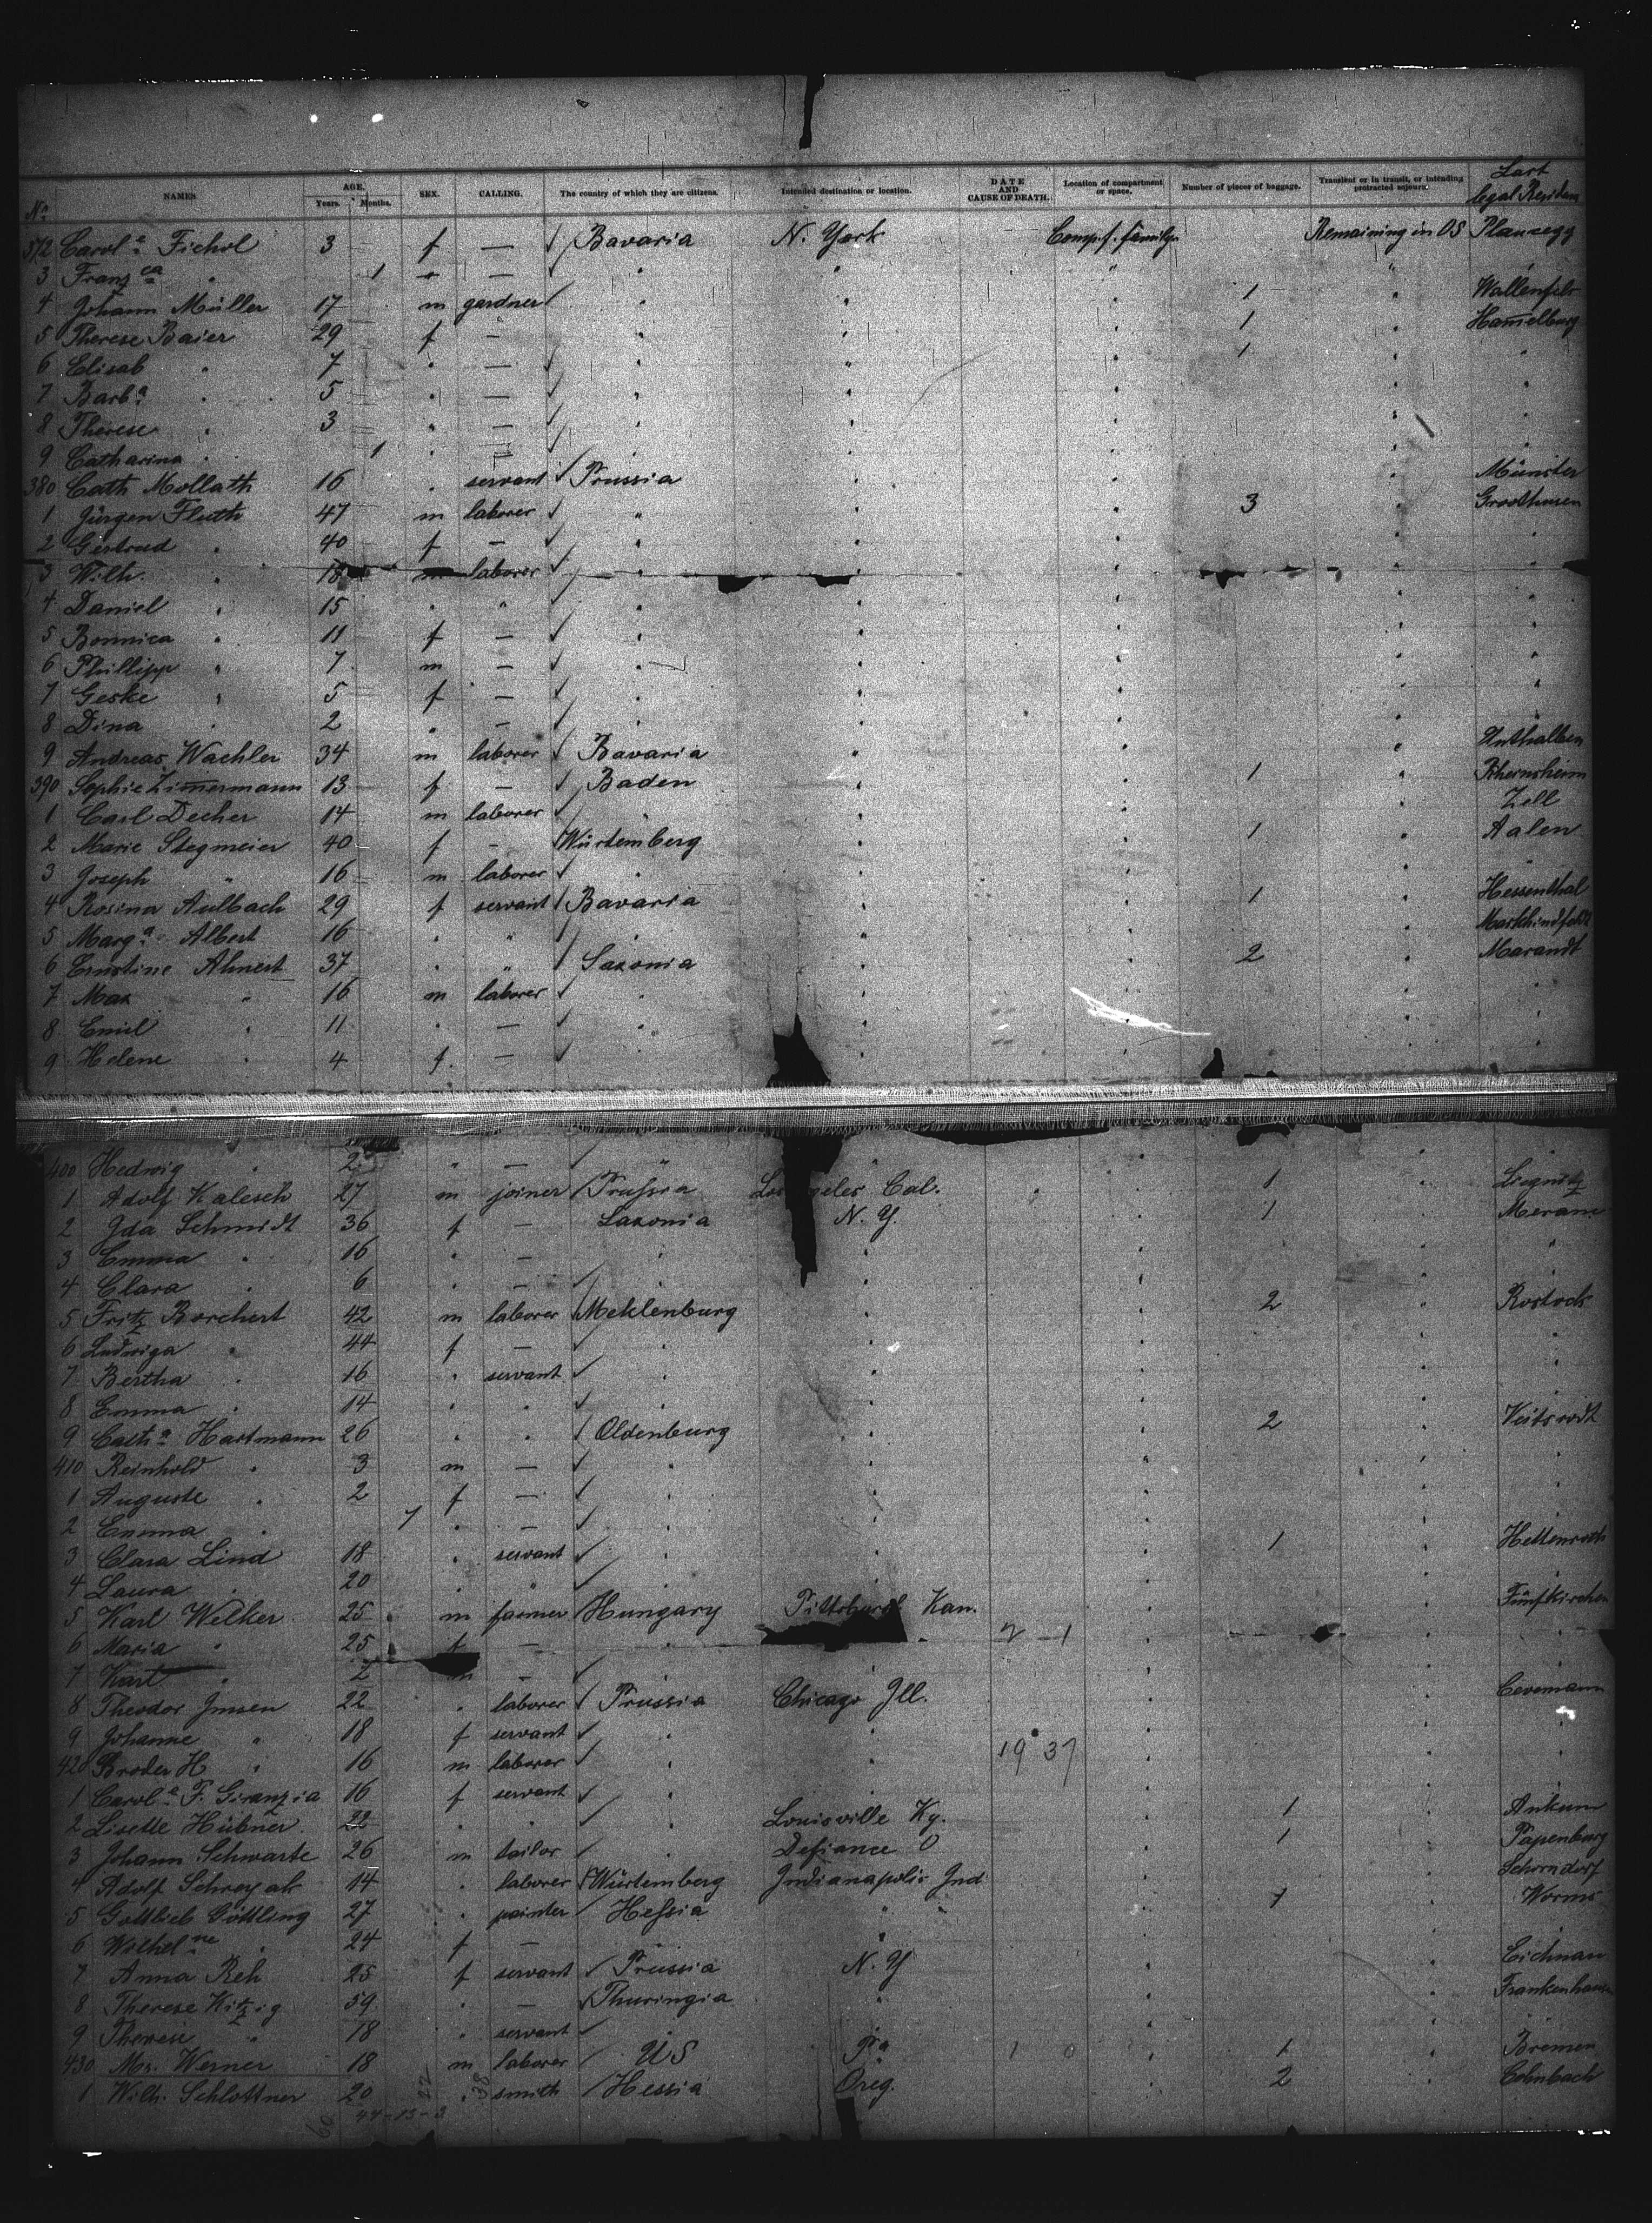 No. NAMES AGE. Years. Months. SEX. CALLING. The country of which they are citizens. Intended destination or location. DATE AND CAUSE OF DEATH. Location of compartment or space. Number of pieces of baggage. Transient or in transit, or intending protracted sojourn. Last legal Residence
372 Carol.e Fichol 3 f — Bavaria N. York Comp. f. family Remaining in US Planegg
3 Franz.ca " 1 " — " " " "
4 Johann Müller 17 m gardner " " " 1 " Wallenfels
5 Therese Baier 29 f — " " " 1 " Hammelburg
6 Elisab " 7 " — " " " 1 " "
7 Barb.a " 5 " — " " " " "
8 Therese " 3 " — " " " " "
9 Catharina " 1 " — " " " " "
380 Cath Mollath 16 " servant Prussia " " " Münster
1 Jürgen Fluth 47 m laborer " " " 3 " Groothusen
2 Gertrud " 40 f — " " " " "
3 Wilh. " 18 m laborer " " " " "
4 Daniel " 15 " " " " " " "
5 Bonnica " 11 f — " " " " "
6 Phillipp " 7 m — " " " " "
7 Geske " 5 f — " " " " "
8 Dina " 2 " — " " " " "
9 Andreas Wachler 34 m laborer Bavaria " " "
390 Sophie Zimmermann 13 f — Baden " " 1 " Rheinsheim
1 Carl Decher 14 m laborer " " " " Zell
2 Marie Stegmeier 40 f — Würtemberg " " 1 " Aalen
3 Joseph " 16 m laborer " " " " "
4 Rosina Aulbach 29 f servant Bavaria " " 1 " Hessenthal
5 Marg.a Albert 16 " " " " " "
6 Ernstine Ahnert 37 " " Saxonia " " 2 " Marandt
7 Max " 16 m laborer " " " " "
8 Emil " 11 " — " " " " "
9 Helene " 4 f. — " " " " "
400 Hedwig " 2 " — " " " " "
1 Adolf Kalesch 27 m joiner Prussia Los geles Cal. " 1 " Liegnitz
2 Ida Schmidt 36 f — Saxonia N. Y. " 1 " Merane
3 Emma " 16 " — " " " " "
4 Clara " 6 " — " " " "
5 Fritz Borchert 42 m laborer Meklenburg " " 2 " Rostock
6 Ludwiga " 44 f — " " " " "
7 Bertha " 16 " servant " " " " "
8 Emma " 14 " " " " " "
9 Cath.a Hartmann 26 " " Oldenburg " " 2 " Veitsrodt
410 Reinhold " 3 m — " " " " "
1 Auguste " 2 f — " " " " "
2 Emma " 7 " — " " " " "
3 Clara Lind 18 " servant " " " 1 " Hettenrodt
4 Laura " 20 " " " " " " "
5 Karl Welker 25 m farmer Hungary Pittsburgh Kan. " " Fünfkirchen
6 Maria " 25 f — " " 2 - 1 " " "
7 Karl " 2 m — " " " "
8 Theodor Jmsen 22 " laborer Prussia Chicago Ill. " "
9 Johanne " 18 f servant " " " " "
420 Broder H " 16 m laborer " " 19 37 " " "
1 Carol.e F. Giranzia 16 f servant " " " "
2 Lisette Hübner 22 " " " Louisville Ky. " 1 " Ankum
3 Johann Schwarte 26 m tailor " Defiance O " 1 " Papenburg
4 Adolf Schreyak 14 " laborer Würtemberg Indianapolis Ind " " Schorndorf
5 Gottlieb Göttling 27 " painter Hessia " " " 1 " Worms
6 Wilhel.ne " 24 f — " " " "
7 Anna Reh 25 f servant Prussia N. Y " " Eichnau
8 Therese Kitzig 59 " — Thuringia " " " Frankenhausen
9 Therese " 18 " servant " " " " "
430 Mr. Werner 18 m laborer US Pa 1 0 " 1 " Bremen
1 Wilh. Schlottner 20 " smith Hessia Oreg. " 2 "
60 44-13-3 22 38